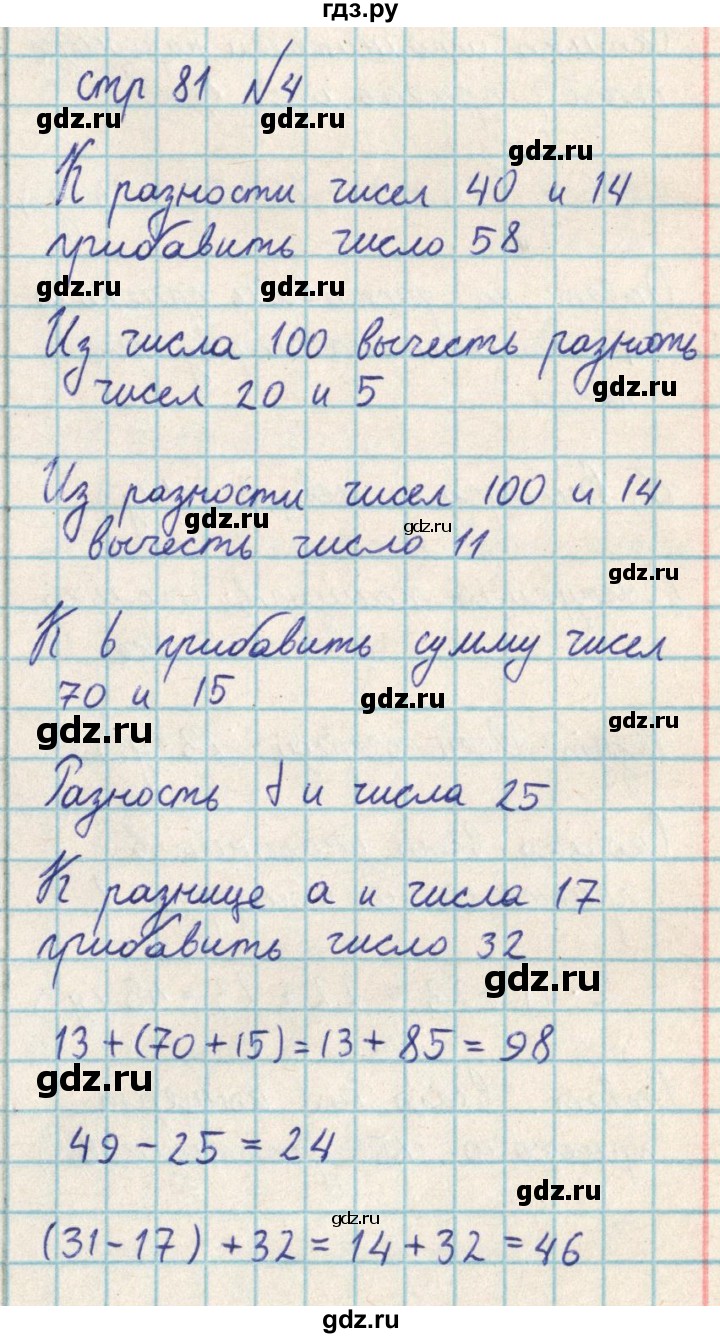 гдз.ру
стр 81 №4
gdz.ru gdz.ru
gdz.ru
К разности чисел 40 и 14
прибавить число 58
gdz.ru gdz.ru
Из числа 100 вычесть разность
чисел 20 и 5
gdz.ru
Из разности чисел 100 и 14
gdz.ru gdz.ru
вычесть число 11
gdz.ru
К b прибавить сумму чисел
70 и 15
gdz.ru
gdz.ru gdz.ru
Разность d и числа 25
К разнице a и числа 17
прибавить число 32
gdz.ru
13+(70+15)=13+85=98
gdz.ru
49-25=24
gdz.ru
gdz.ru
(31-17)+32=14+32=46
gdz.ru